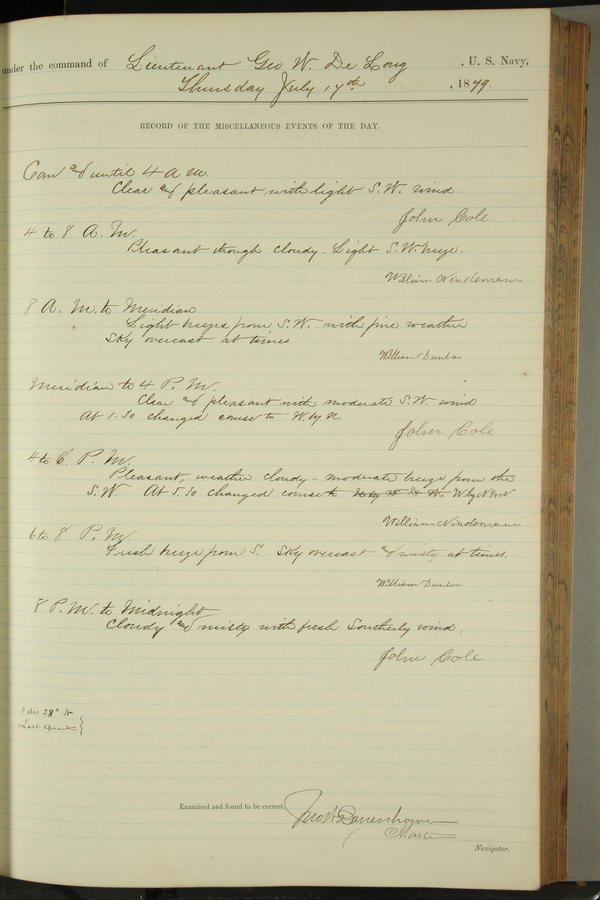 under the command of Lieutenant Geo W. De Long, U. S. Navy,
Thursday July 17th, 1879.
RECORD OF THE MISCELLANEOUS EVENTS OF THE DAY.
Com and until 4 A. M.
Clear and pleasant with light S. W. wind.
John Cole
4 to 8 A. M.
Pleasant though cloudy. Light S. W. breeze.
William Nindemann
8 A. M. to Meridian
Light breezes from S. W. with fine weather
Sky overcast at times
William Dunbar
Meridian to 4 P. M.
Clear and pleasant with moderate S. W. wind
At 1.30 changed course to W. by N
John Cole
4 to 6 P. M.
Pleasant, weather cloudy - moderate breeze from the
S. W. At 5.30 changed course to W. by N ½ N
William Nindemann
6 to 8 P. M.
Fresh breeze from S. Sky overcast & misty at times.
William Dunbar
8 P. M. to Midnight
Cloudy and misty with fresh Southerly wind.
John Cole
dec 28° N
Last Quarter
Examined and found to be correct.
Jno W Danenhower
Master
Navigator.